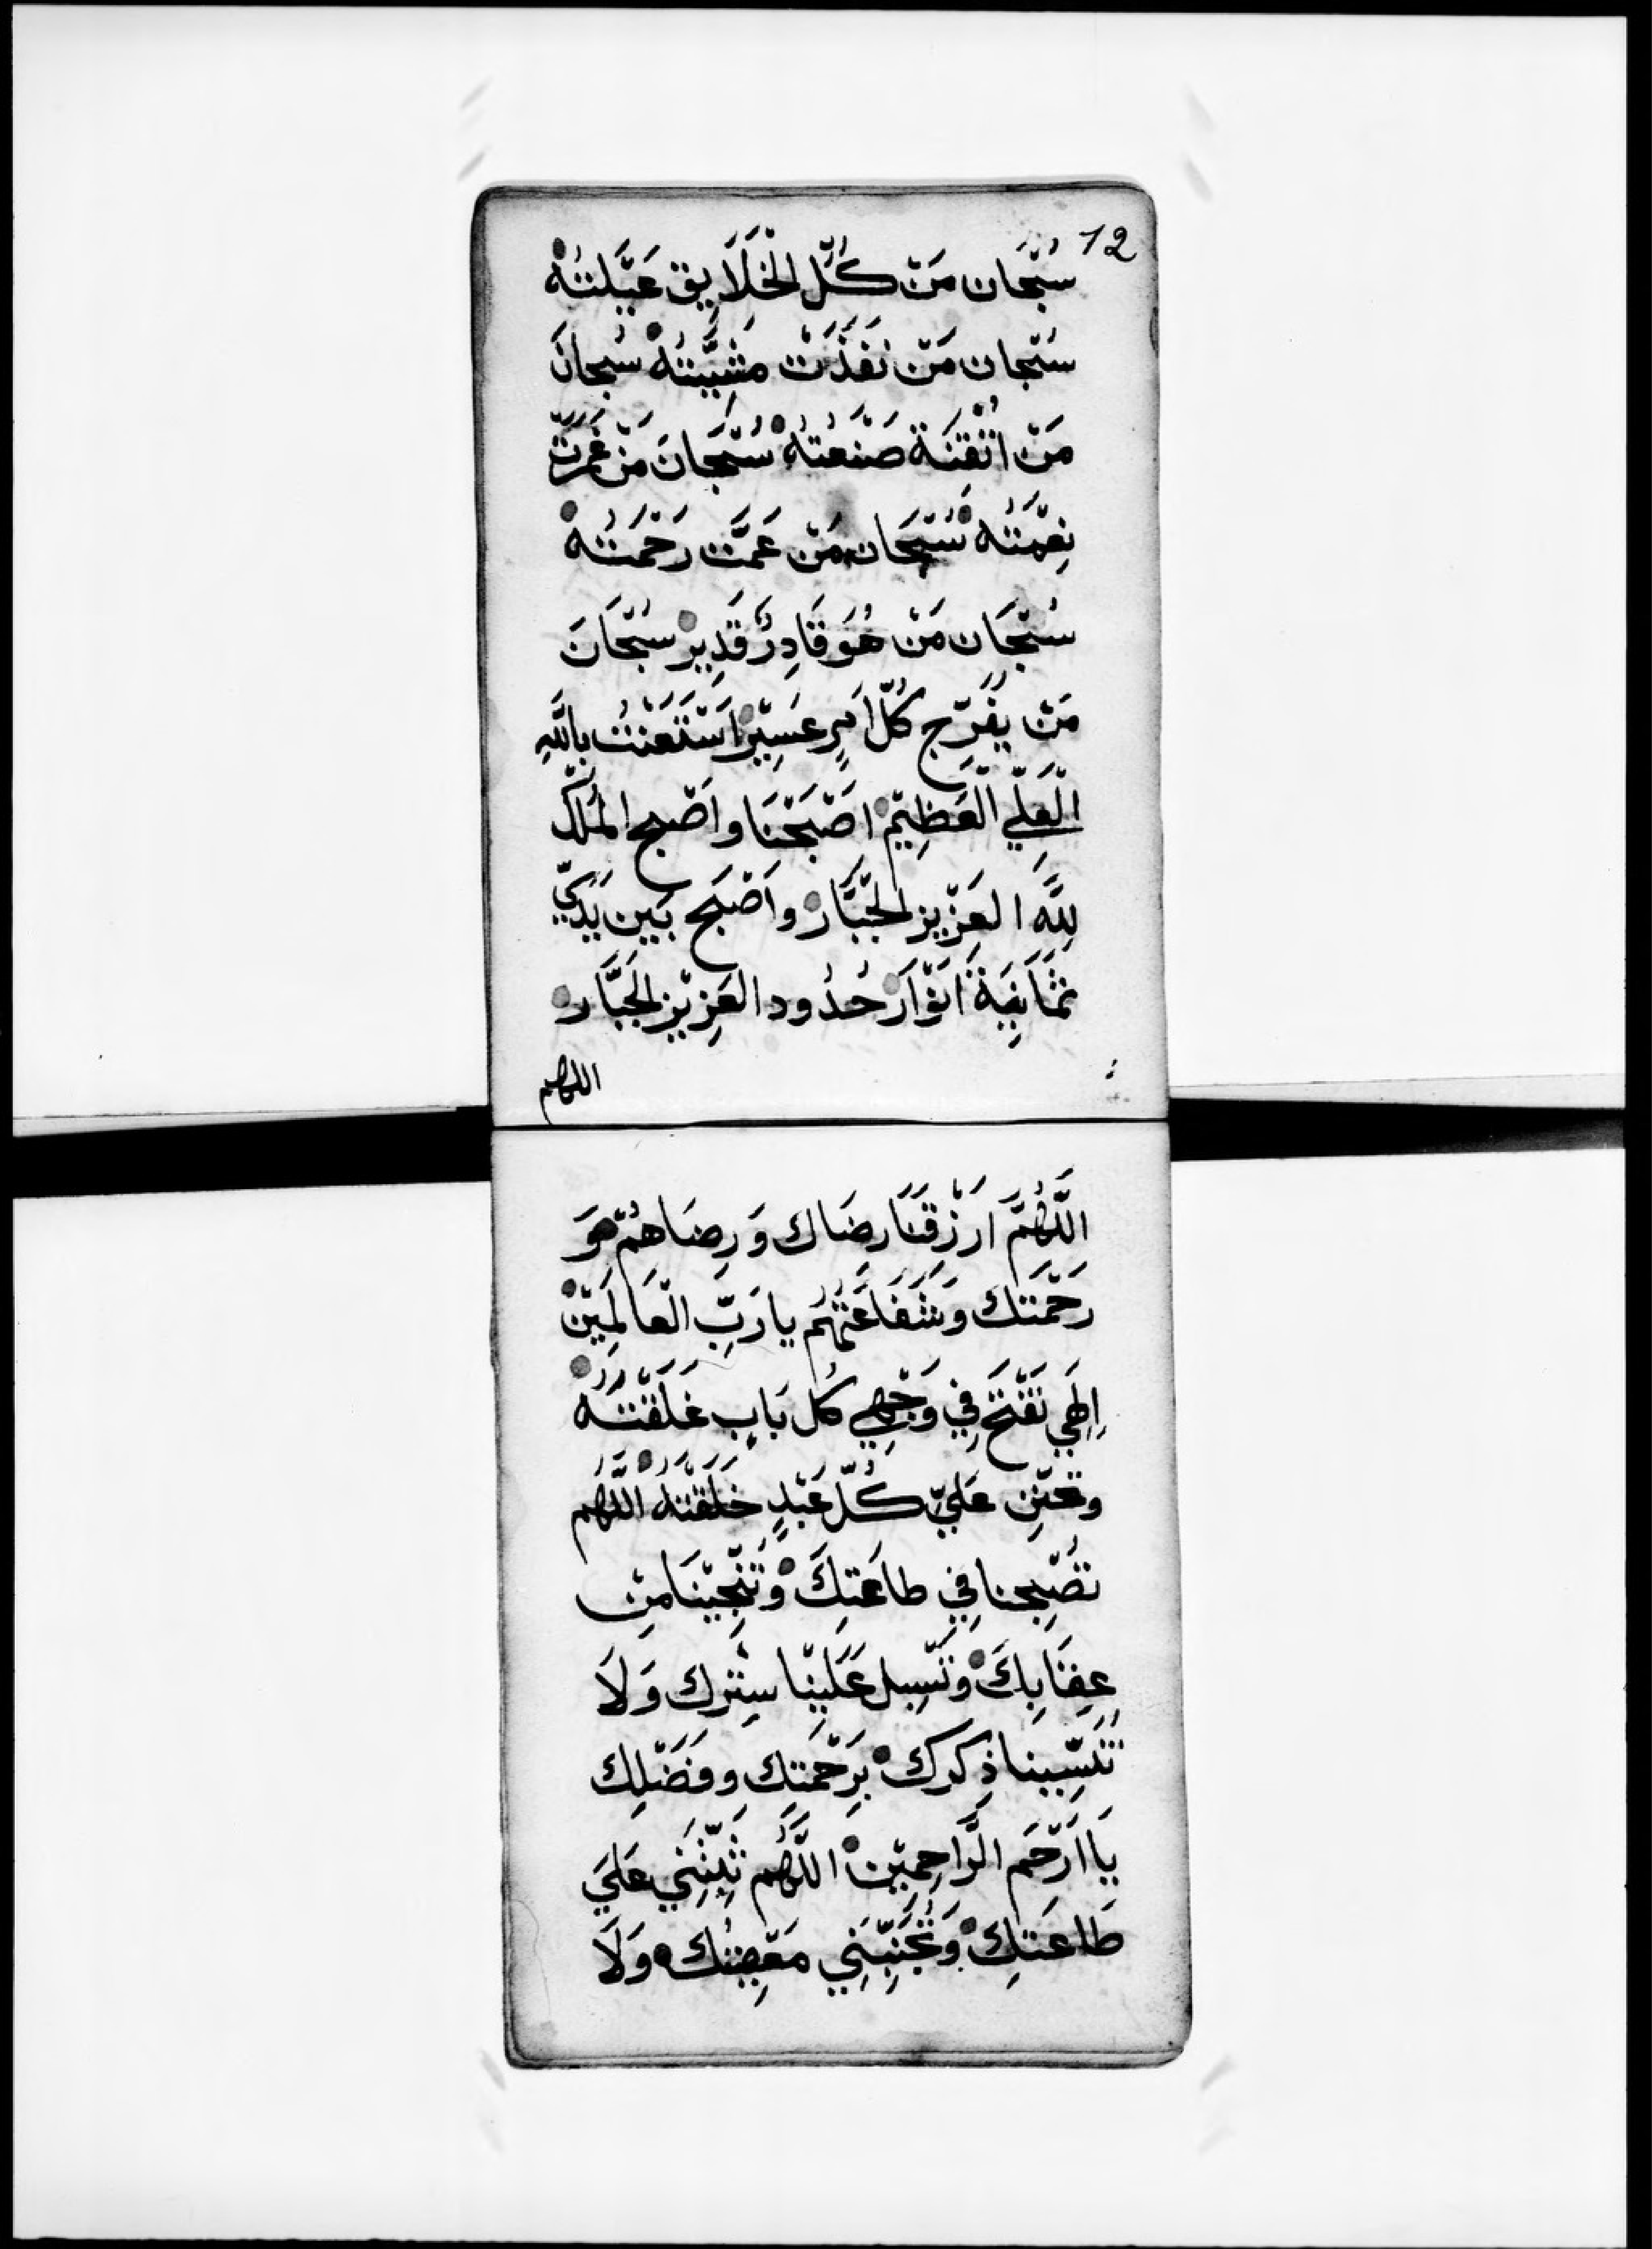 12
سُبْحَان مَنْ كُلّ الْخَلَايِق عَيَّلتُهْ
سُبْحان مَنْ نَفَذَتْ مَشِيَّتهُ سُبحانَ
مَنْ اتْقَنَة صَنْعتُهُ سُبْحَانَ مَنْ غمرَتْ
نِعْمَتُه سُبْحَان مَنْ عَمَّت رَحْمَتُهْ
سُبْحَان مَنْ هُوَ قَادِرٌ قَدِيرْ سُبْحَانَ
مَنْ يفَرِّج كُلّ اَمرٍ عَسِيْر اَسْتَعَنْتُ بِاللهِ
الْعَلِّي الْعَظِيْم اصْبَحْنَا واَصْبح المُلكْ
لِلّهَ العَزِيْز الجَّبَّار واَصْبَح بَين يَدَيّ
ثمَانِيَة اَنْوَار حُدُود العَزِيْز الجَبَّار
اللهم
اللَّهُمَّ ارْزقْنَا رضَاك وَرِضَاهُمْ هوَ
رَحْمَتك وَشَفَاعَتهُم يا رَبِّ الْعَالَمِيْن
اِلَهِي تَفْتَح فِي وَجْهِي كُل بَابٍ غلَقْتَهُ
وتحنِّن عَليّ كُلّ عَبْدٍ خَلَقْتهُ اللَّهُم
تصْبِحنا فِي طاعَتِكَ وتُنْجِيْنَا مِن
عِقَابِكَ وَتَسْبِل عَلَيْنا سِتْرك وَلَا
تنَسِّينا ذِكرك بِرَحْمَتك وفَضْلِك
يَا ارْحَم الرَّاحِمِيْن اللَّهُم ثَبِّتْنِي عَلَي
طَاعَتكِ وَتُجَنِّبْنِي مَعْصِيتُك وَلَا